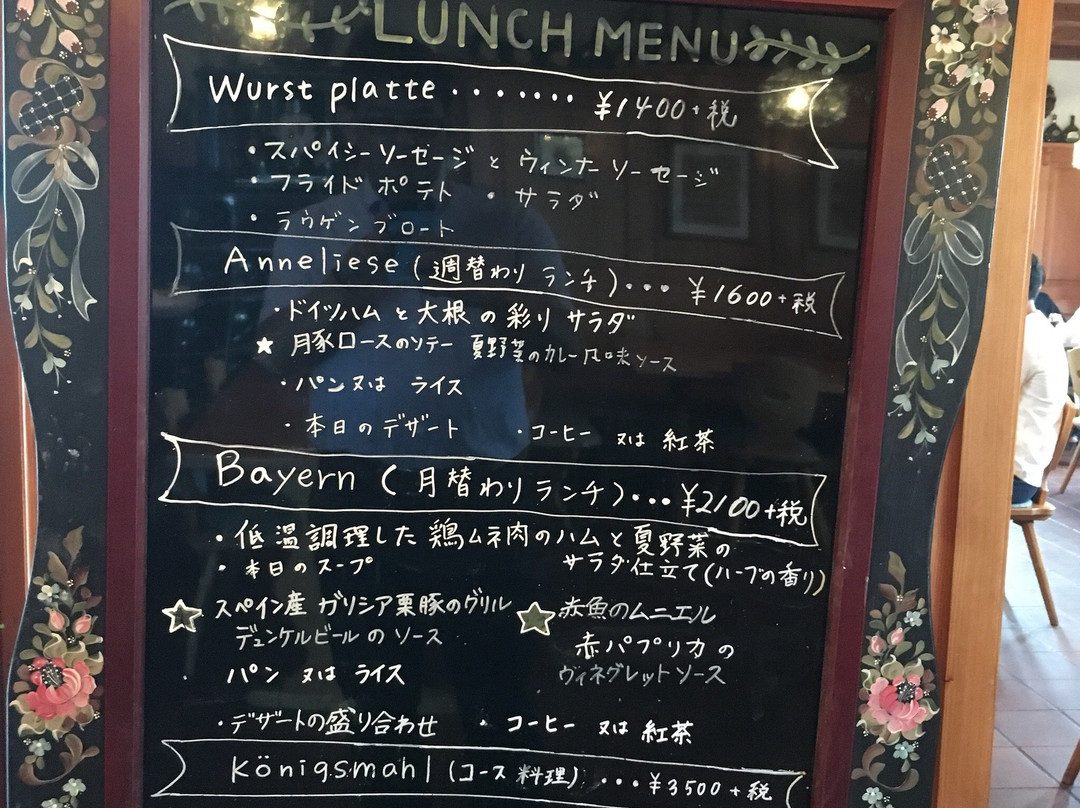 LUNCH MENU
Wurst platte ・・・・・・・ ¥1400+税
・スパイシーソーセージ と ウィンナーソーセージ
・フライドポテト ・サラダ
・ラウゲンブロート
Anneliese (週替わり ランチ)・・・ ¥1600+税
・ドイツハムと大根の彩りサラダ
★ 月豚ロースのソテー 夏野菜のカレー風味ソース
・パン又は ライス
・本日のデザート ・コーヒー 又は 紅茶
Bayern (月替わりランチ)・・・¥2100+税
・低温調理した 鶏ムネ肉のハムと夏野菜の
サラダ仕立て(ハーブの香り)
・本日のスープ
☆ スペイン産 ガリシア栗豚のグリル
デュンケルビールのソース
☆ 赤魚のムニエル
赤パプリカの
ヴィネグレットソース
・パン 又は ライス
・デザートの盛り合わせ ・コーヒー 又は 紅茶
Königsmahl (コース料理) ・・・¥3500+税